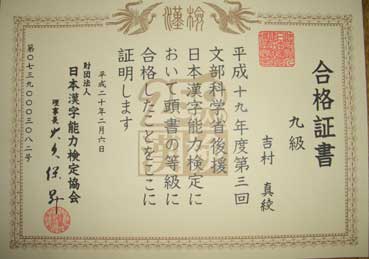 漢検
合格証書
九級
吉村 真綾
平成十九年度第三回
文部科学省後援
日本漢字能力検定に
おいて頭書の等級に
合格したことをここに
証明します
平成二十年二月六日
財団法人
日本漢字能力検定協会
理事長 大久保 昇
第〇七三九〇〇〇三〇八二号